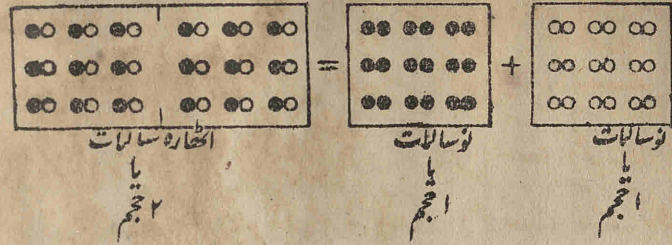 = +
اٹھارہ سالمات
یا
۲ حجم
نو سالمات
یا
۱ حجم
نو سالمات
یا
۱ حجم